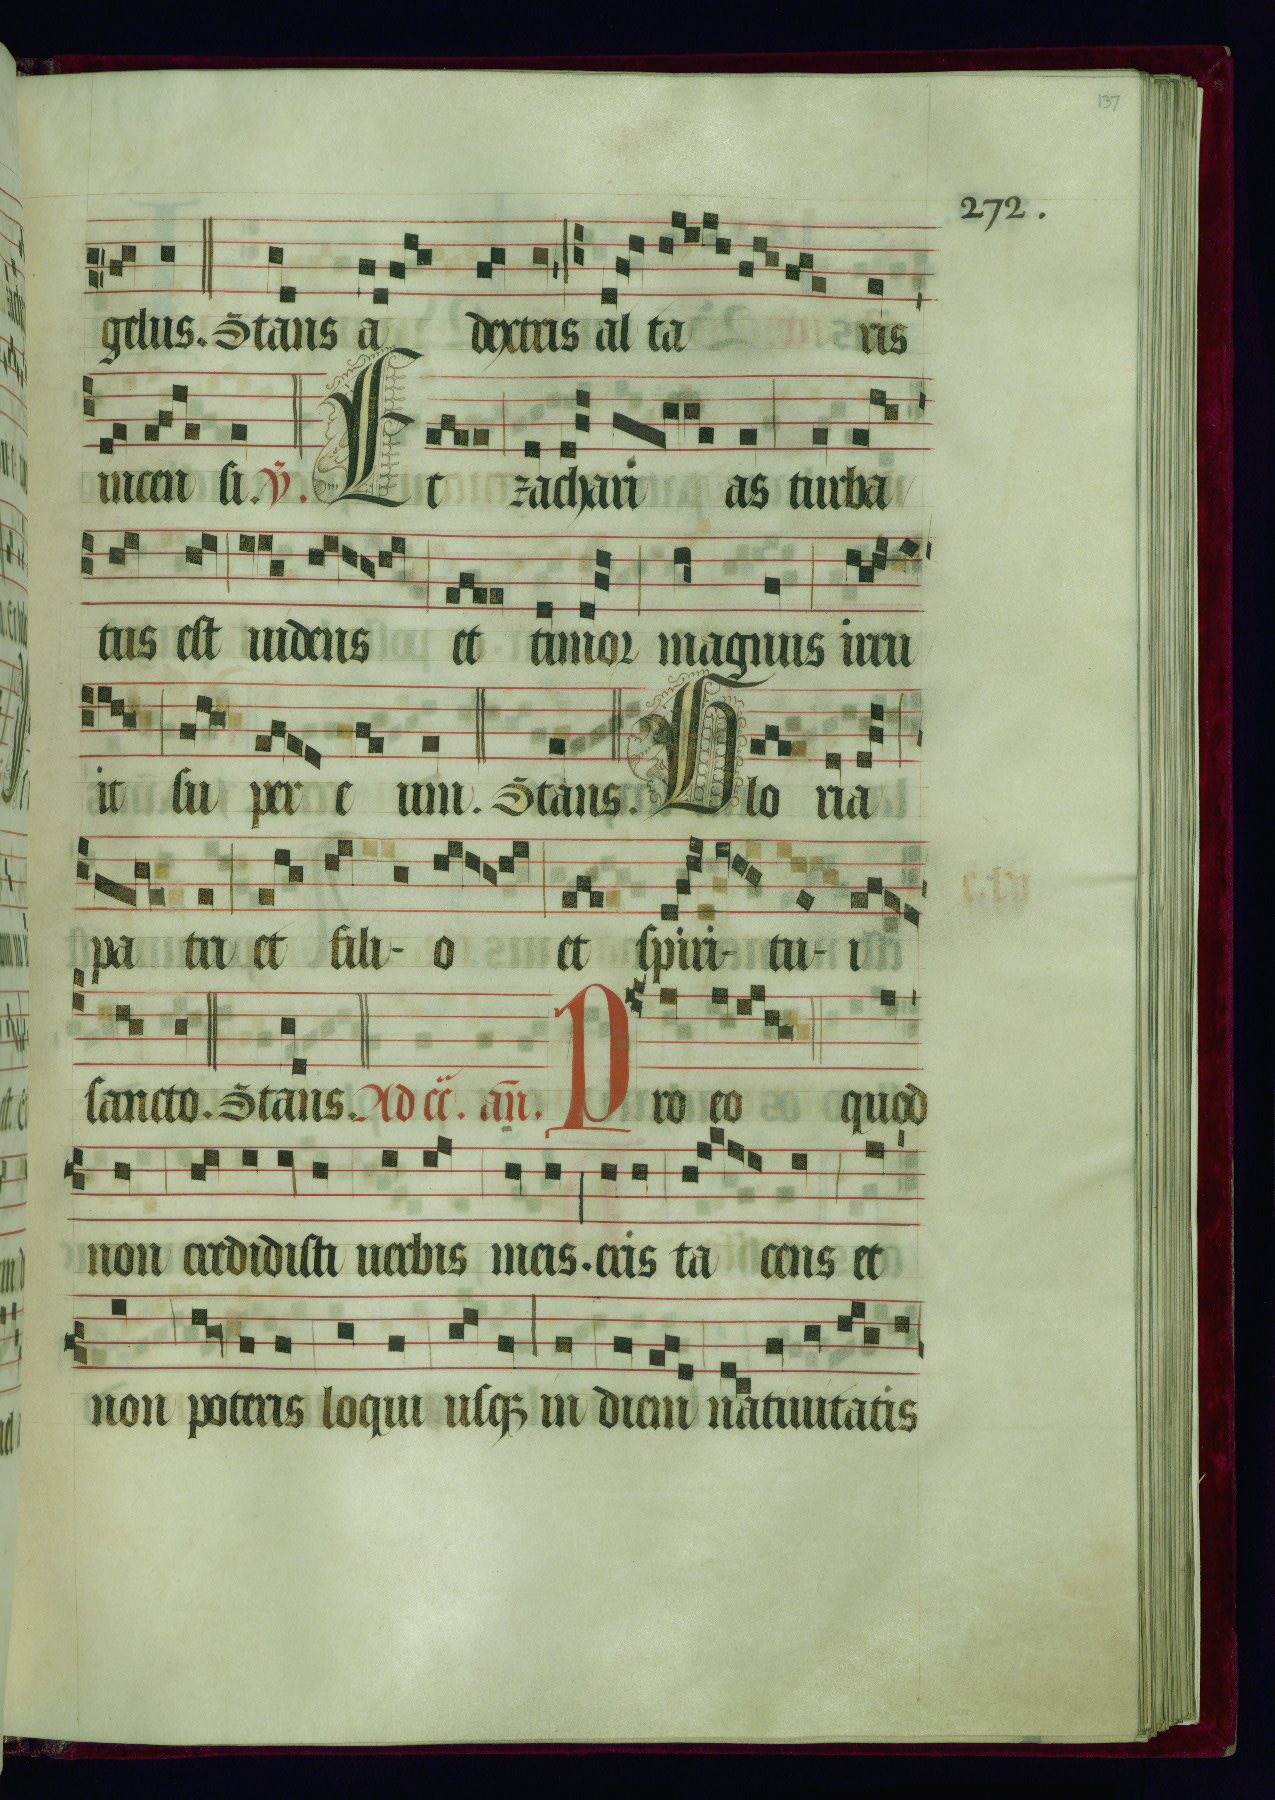 137
272.
gelus. Stans a dextris al ta ris
incen si. v̄. Et zachari as turba
tus est uidens et timor magnus irru
it su per e um. Stans. Glo ria
pa tri et fili- o et spiri- tu- i
sancto. Stans. Ad cc̄. an̄. Pro eo quod
non credidisti uerbis meis. eris ta cens et
non poteris loqui usqꝫ in diem natiuitatis